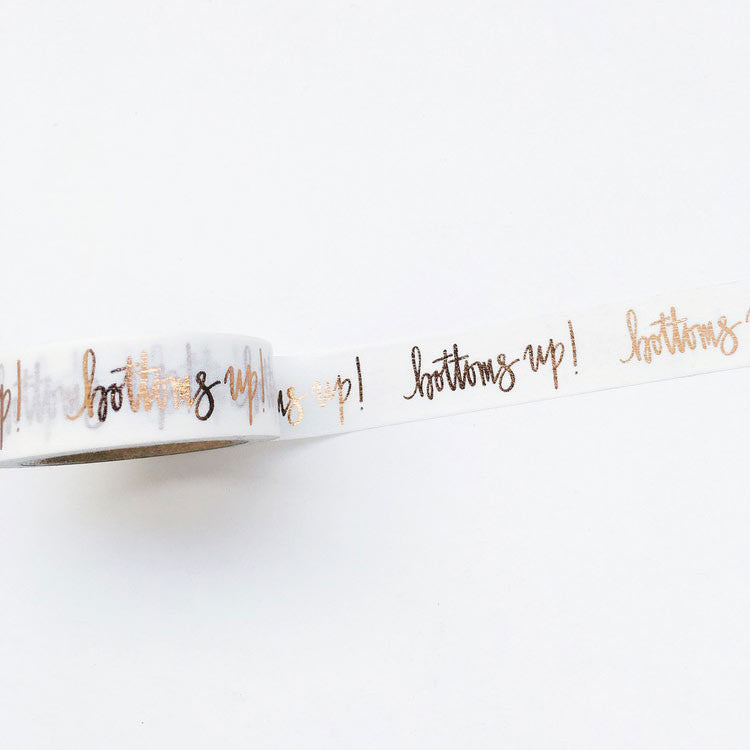 p! bottoms up! ms up! bottoms up! bottoms